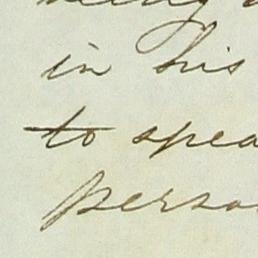 in his
to spea
perso